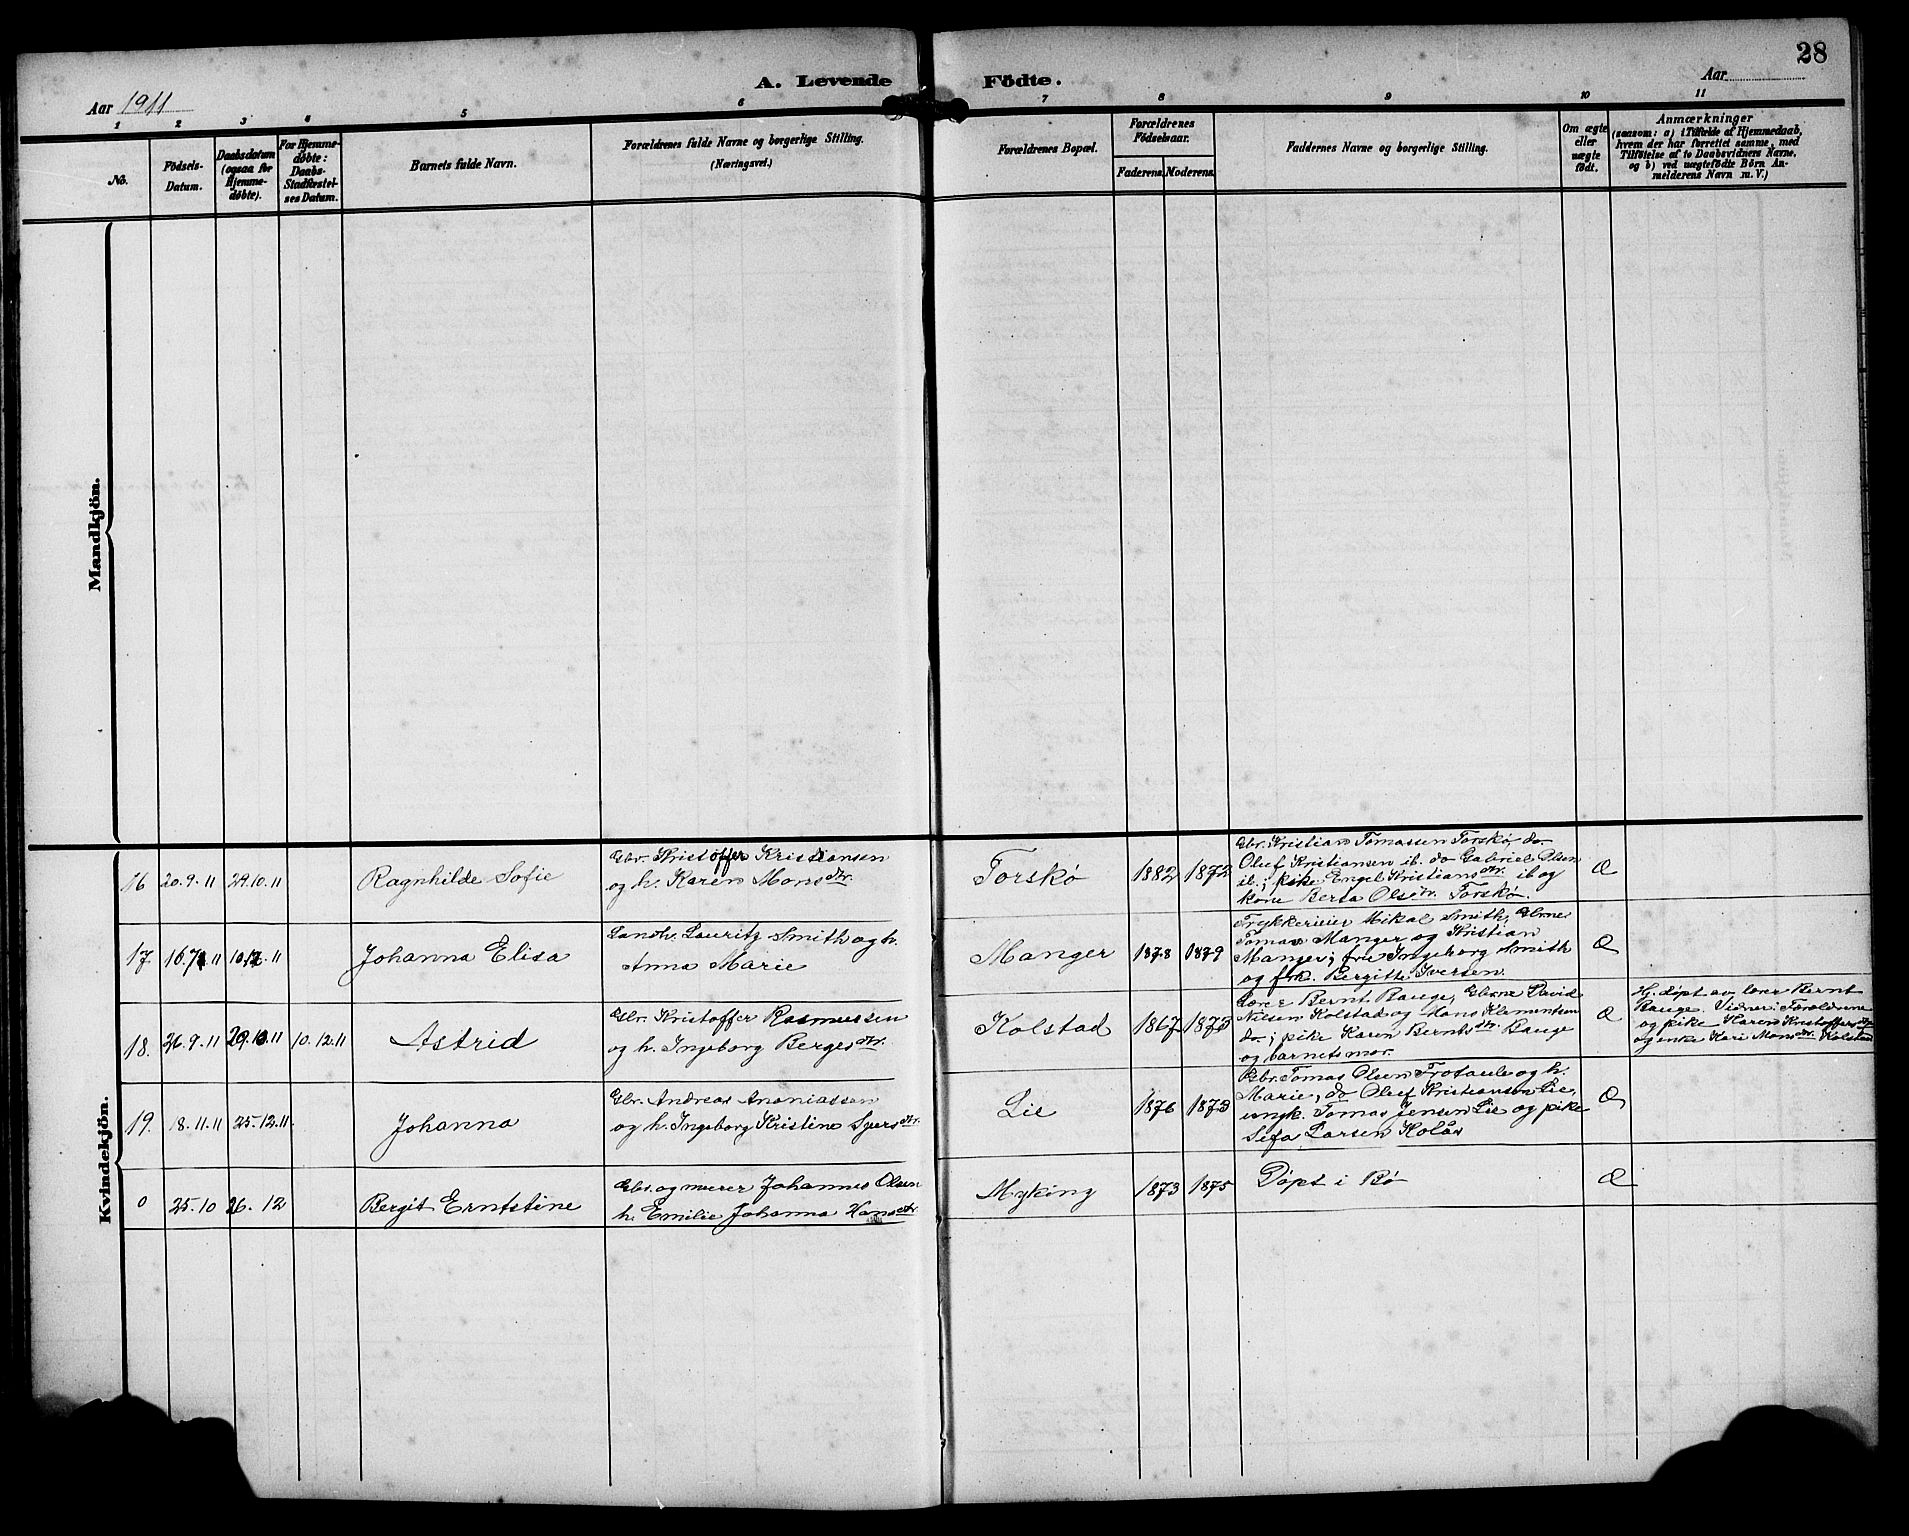 28
A. Levende Födte.
Aar 1911
Aar
1 2 3 4 5 6 7 8 9 10 11
No.
Födsels-
Datum.
Daabsdatum
(ogsaa for
Hjemme-
døbte).
For Hjemme-
døbte:
Daabs-
Stadfæstel-
ses Datum.
Barnets fulde Navn.
Forældrenes fulde Navne og borgerlige Stilling.
(Næringsvei.)
Forældrenes Bopæl.
Forældrenes
Födselsaar.
Faderens. Moderens.
Faddernes Navne og borgerlige Stilling.
Om ægte
eller
uægte
født.
Anmærkninger
(saasom: a) i Tilfælde af Hjemmedaab,
hvem der har forrettet samme, med
Tilföielse af to Daabsvidners Navne,
og b) ved uægtefödte Börn An-
melderens Navn m. V.)
Mandkjön.
Kvindekjön.
16 20.9.11 29.10.11
Ragnhilde Sofie
Gbr. Kristoffer Kristiansen
og h. Karen Monsdtr.
Torskø
1882 1872
Gbr. Kristian Tomassen Torskø, do
Oluf Kristiansen ib. do Gabriel Olsen
ib.; pike Engel Kristiansdtr. ib og
kone Berta Olsdtr. Torskø.
Æ
17 10.12.11
Johanna Elisa
Landh. Lauritz Smith og h.
Anna Marie
Manger
1878 1879
Mikal Smith, Gbrne
Tomas Manger og Kristian
Manger; fru Ingeborg Smith
og frk. Bergitte Iversen.
Æ
18. 26.9.11 29.10.11 10.12.11
Astrid
Gbr. Kristoffer Rasmussen
og h. Ingeborg Bergesdtr.
Kolstad
1867 1875
Lærer Bernt Bauge, Gbrne David
Nilsen Kolstad og Mons Klementsen
do.; pike Karen Berntsdtr. Bauge
og barnets mor.
Æ
Hj. døpt av lærer Bernt
Bauge. Vidner: Forældrene
og pike Karen Kristoffersdtr.
og enke Kari Monsdtr. Kolstad
19. 18.11.11 25.12.11
Johanna
Gbr. Andreas Ananiassen
og h. Ingeborg Kristine Syversdtr.
Lie
1876 1873
Gbr. Tomas Olsen og h.
Marie, do Oluf Kristiansen Lie,
ungk. Tomas Jensen Lie og pike
Sefa Larsen Kolås
Æ
0 25.10 26.12
Bergit Erntstine
Gbr. og murer Johannes Olsen
h. Emilie Johanna Hansdtr.
Myking
1873 1875
Døpt i Bø
Æ